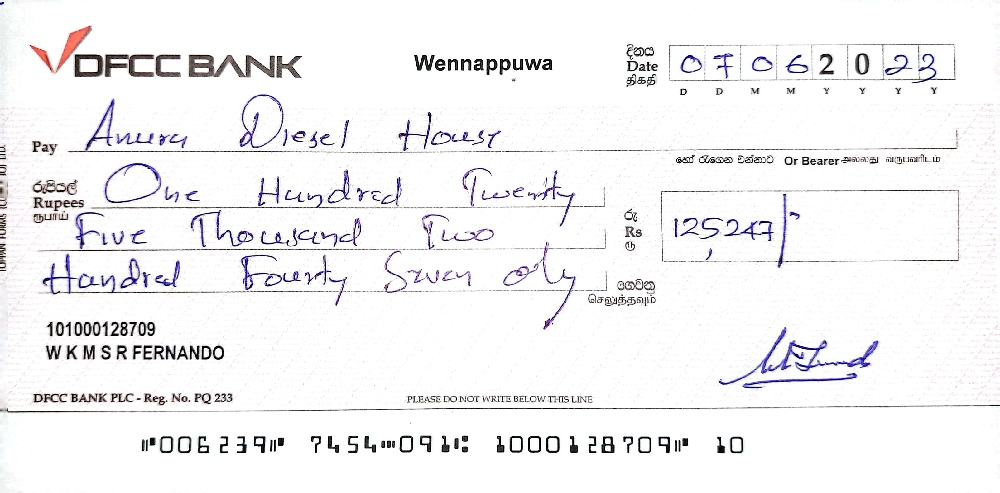 DFCC BANK
Wennappuwa
දිනය
Date
திகதி
0 7 0 6 2 0 2 3
D D M M Y Y Y Y
Pay Anura Diesel House
හෝ රැගෙන එන්නාට Or Bearer அல்லது வருபவரிடம்
රුපියල්
Rupees
ரூபாய்
One Hundred Twenty
Five Thousand Two
Hundred Fourty Seven only
රු
Rs
ரூ
125,247/-
ගෙවනු
செலுத்தவும்
101000128709
W K M S R FERNANDO
DFCC BANK PLC - Reg. No. PQ 233
PLEASE DO NOT WRITE BELOW THIS LINE
⑈006239⑈ 7454⑉091⑆ 1000128709⑈ 10